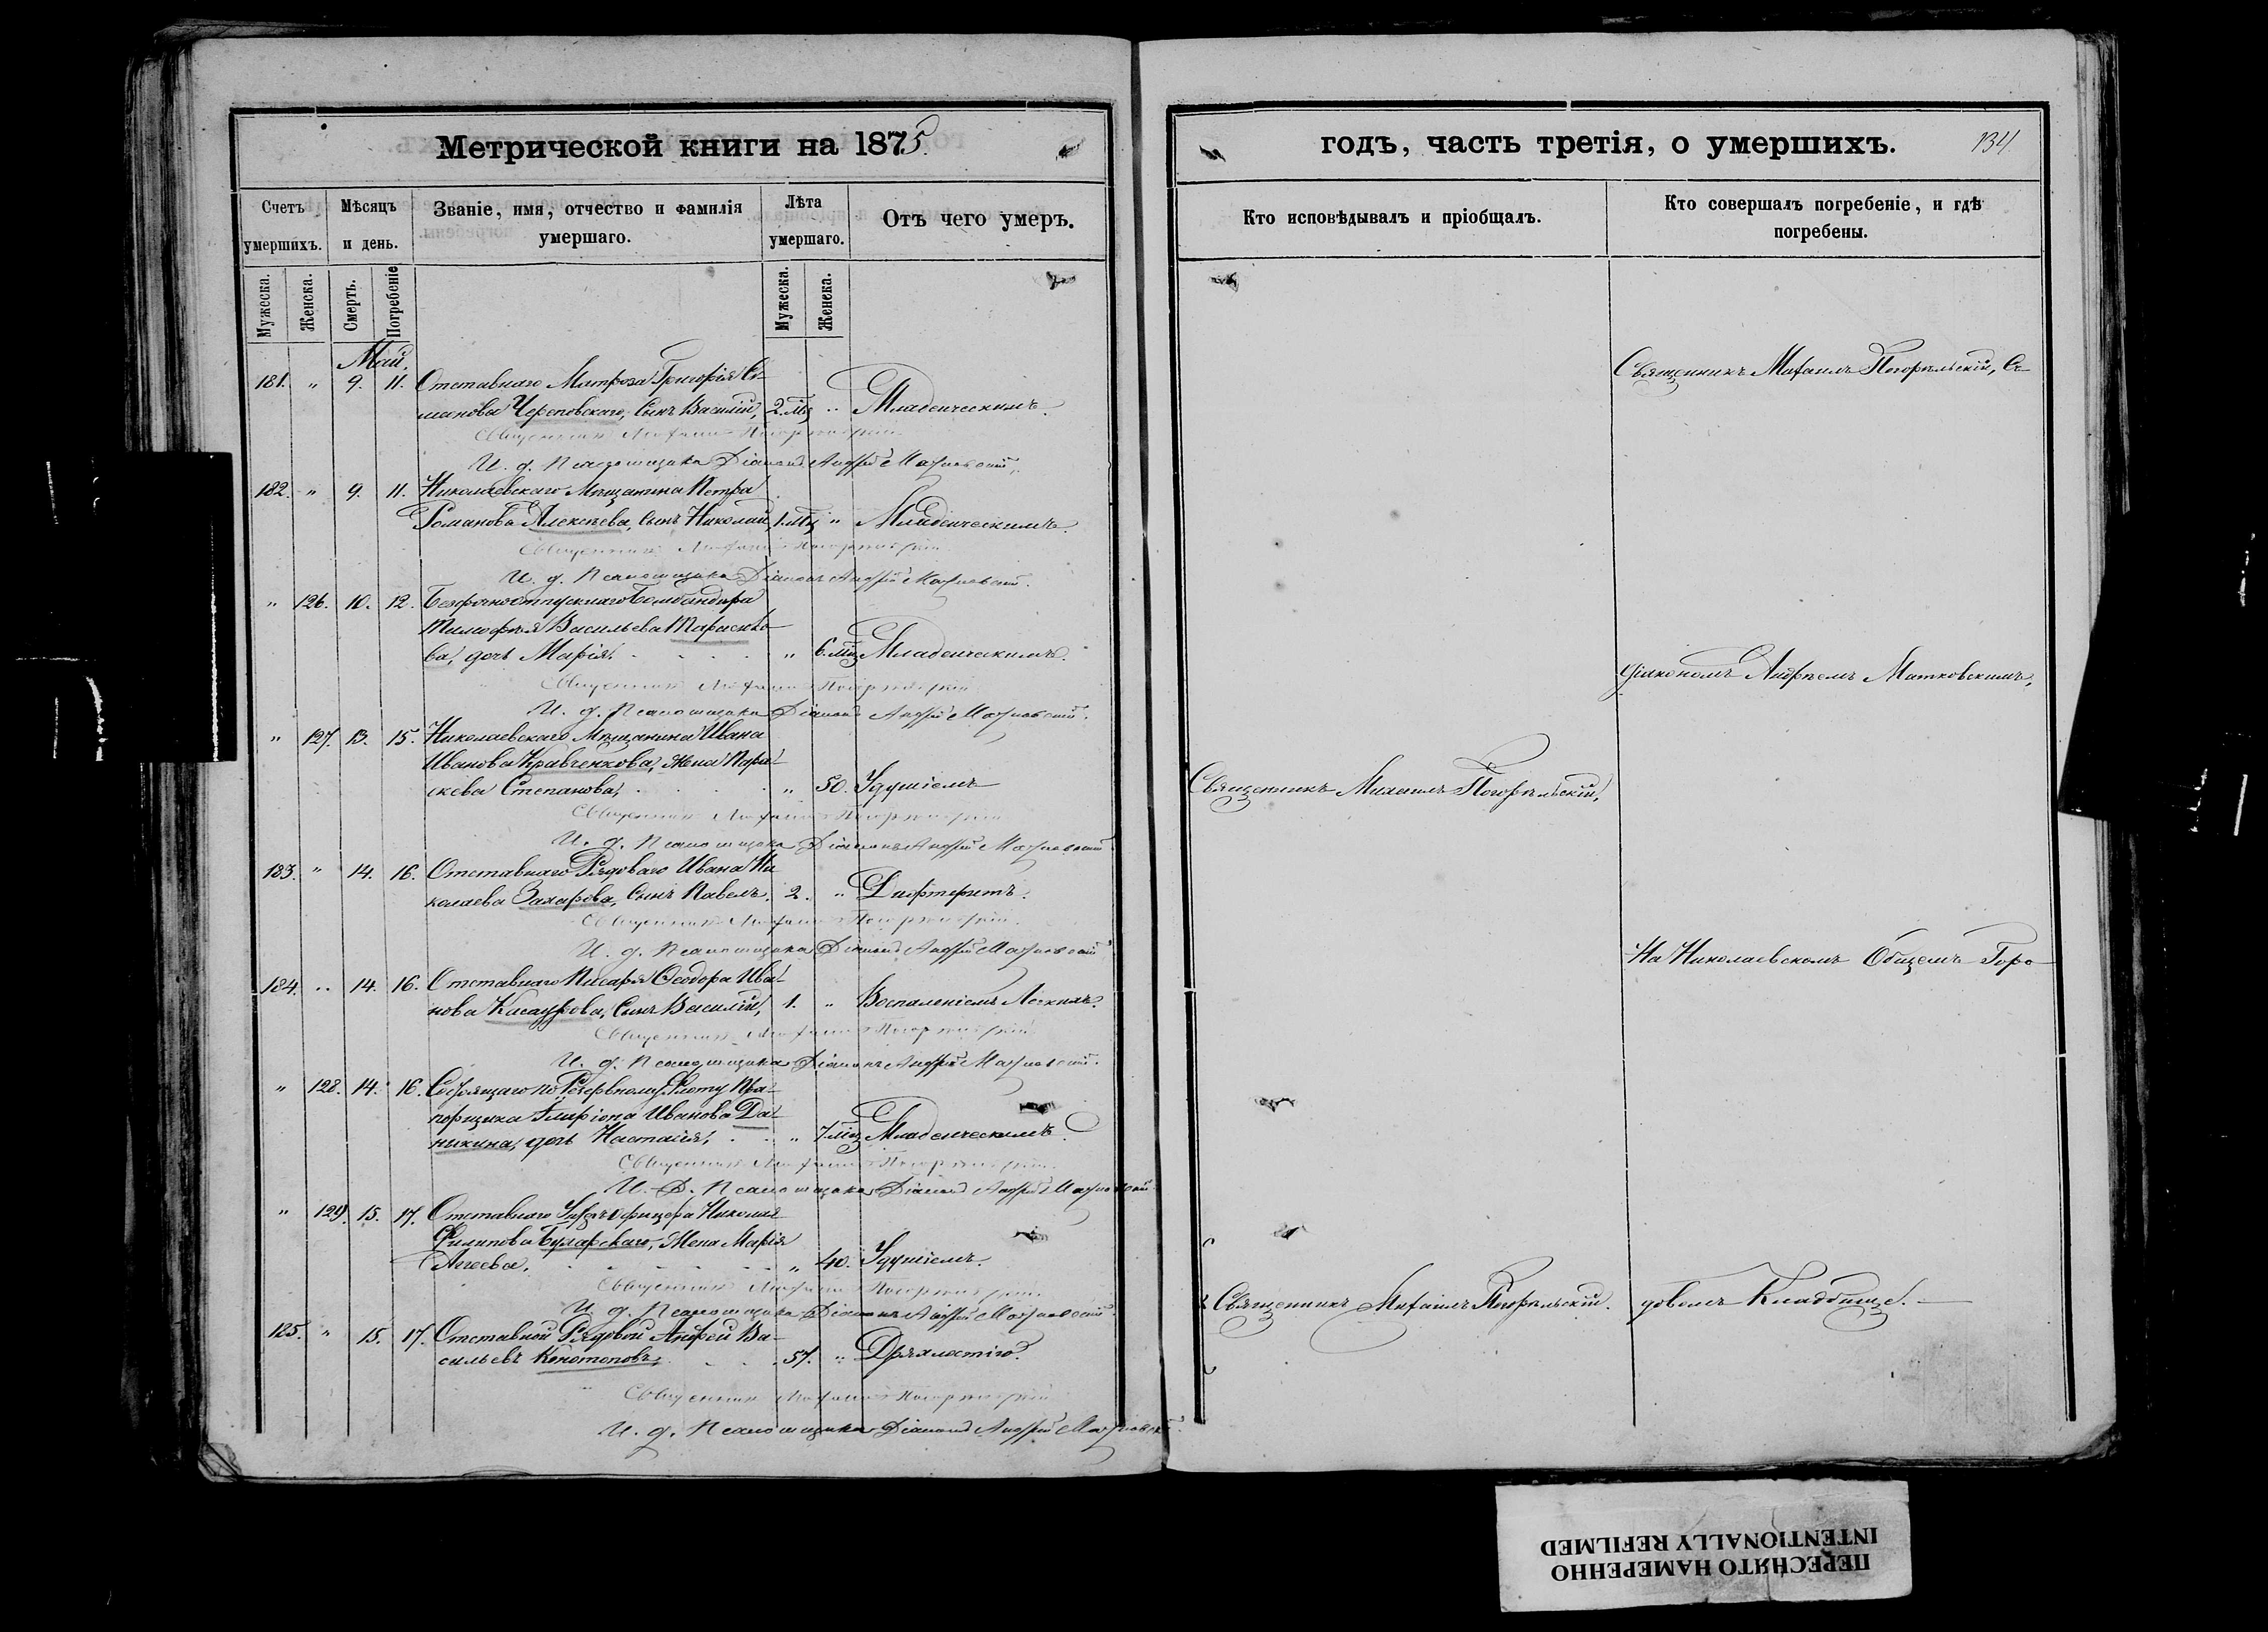 Метрической книги на 1875.
Счетъ умершихъ.
Мѣсяцъ и день.
Званіе, имя, отчество и фамилія умершаго.
Лѣта умершаго.
Отъ чего умеръ.
Мужеска.
Женска.
Смерть.
Погребеніе
Мужеска.
Женска.
Май.
181. " 9. 11. Отставнаго Матроса Григорія Се-
манова Череповскаго, Сынъ Василій, 2. мц " Младенческимъ.
Священникъ Михаилъ Погорѣльскій
И. д. Псаломщика Діаконъ Андрей Матковскій.
182. " 9. 11. Николаевскаго Мѣщанина Петра
Романова Алексѣева, Сынъ Николай, 1. мц " Младенческимъ.
Священникъ Михаилъ Погорѣльскій
И. д. Псаломщика Діаконъ Андрей Матковскій.
" 126. 10. 12. Безсрочноотпускнаго Бомбандира
Тимофѣя Васильева Тарасько-
ва, дочь Марія, " 6. мц Младенческимъ.
Священникъ Михаилъ Погорѣльскій
И. д. Псаломщика Діаконъ Андрей Матковскій.
" 127. 13. 15. Николаевскаго Мѣщанина Ивана
Иванова Кравченкова, Жена Пара-
скева Степанова, " 50. Удушіемъ
Священникъ Михаилъ Погорѣльскій
И. д. Псаломщика Діаконъ Андрей Матковскій
183. " 14. 16. Отставнаго Рядоваго Ивана Ни-
колаева Захарова, Сынъ Павелъ. 2. " Дифтеритъ.
Священникъ Михаилъ Погорѣльскій
И. д. Псаломщика Діаконъ Андрей Матковскій
184. " 14. 16. Отставнаго Писаря Ѳеодора Ива-
нова, Сынъ Василій, 1. " Воспаленіемъ Легкихъ.
Священникъ Михаилъ Погорѣльскій
И. д. Псаломщика Діаконъ Андрей Матковскій.
" 128. 14. 16. Состоящаго по Резервному Флоту Пра-
порщика Иларіона Иванова Да-
ныкина, дочь Настасія, " 7. мц Младенческимъ.
Священникъ Михаилъ Погорѣльскій
И. Д. Псаломщика Діаконъ Андрей Матковскій
" 129. 15. 17. Отставнаго Унд. офицера Николая
Филипова Буларскаго, Жена Марія
Агеева. " 40. Удушіемъ.
Священникъ Михаилъ Погорѣльскій
И. д. Псаломщика Діаконъ Андрей Матковскій
125. " 15. 17. Отставной Рядовой Андрей Ва-
сильевъ Конотоповъ, 57. " Дряхлостію.
Священникъ Михаилъ Погорѣльскій
И. д. Псаломщика Діаконъ Андрей Матковскій.
годъ, часть третія, о умершихъ.
134
Кто исповѣдывалъ и пріобщалъ.
Кто совершалъ погребеніе, и гдѣ погребены.
Священникъ Михаилъ Погорѣльскій, Съ
діакономъ Андреемъ Матковскимъ,
Священникъ Михаилъ Погорѣльскій,
На Николаевскомъ Общемъ Горо-
Священникъ Михаилъ Погорѣльскій.
довомъ Кладбище.
ПЕРЕСНЯТО НАМЕРЕННО
INTENTIONALLY REFILMED